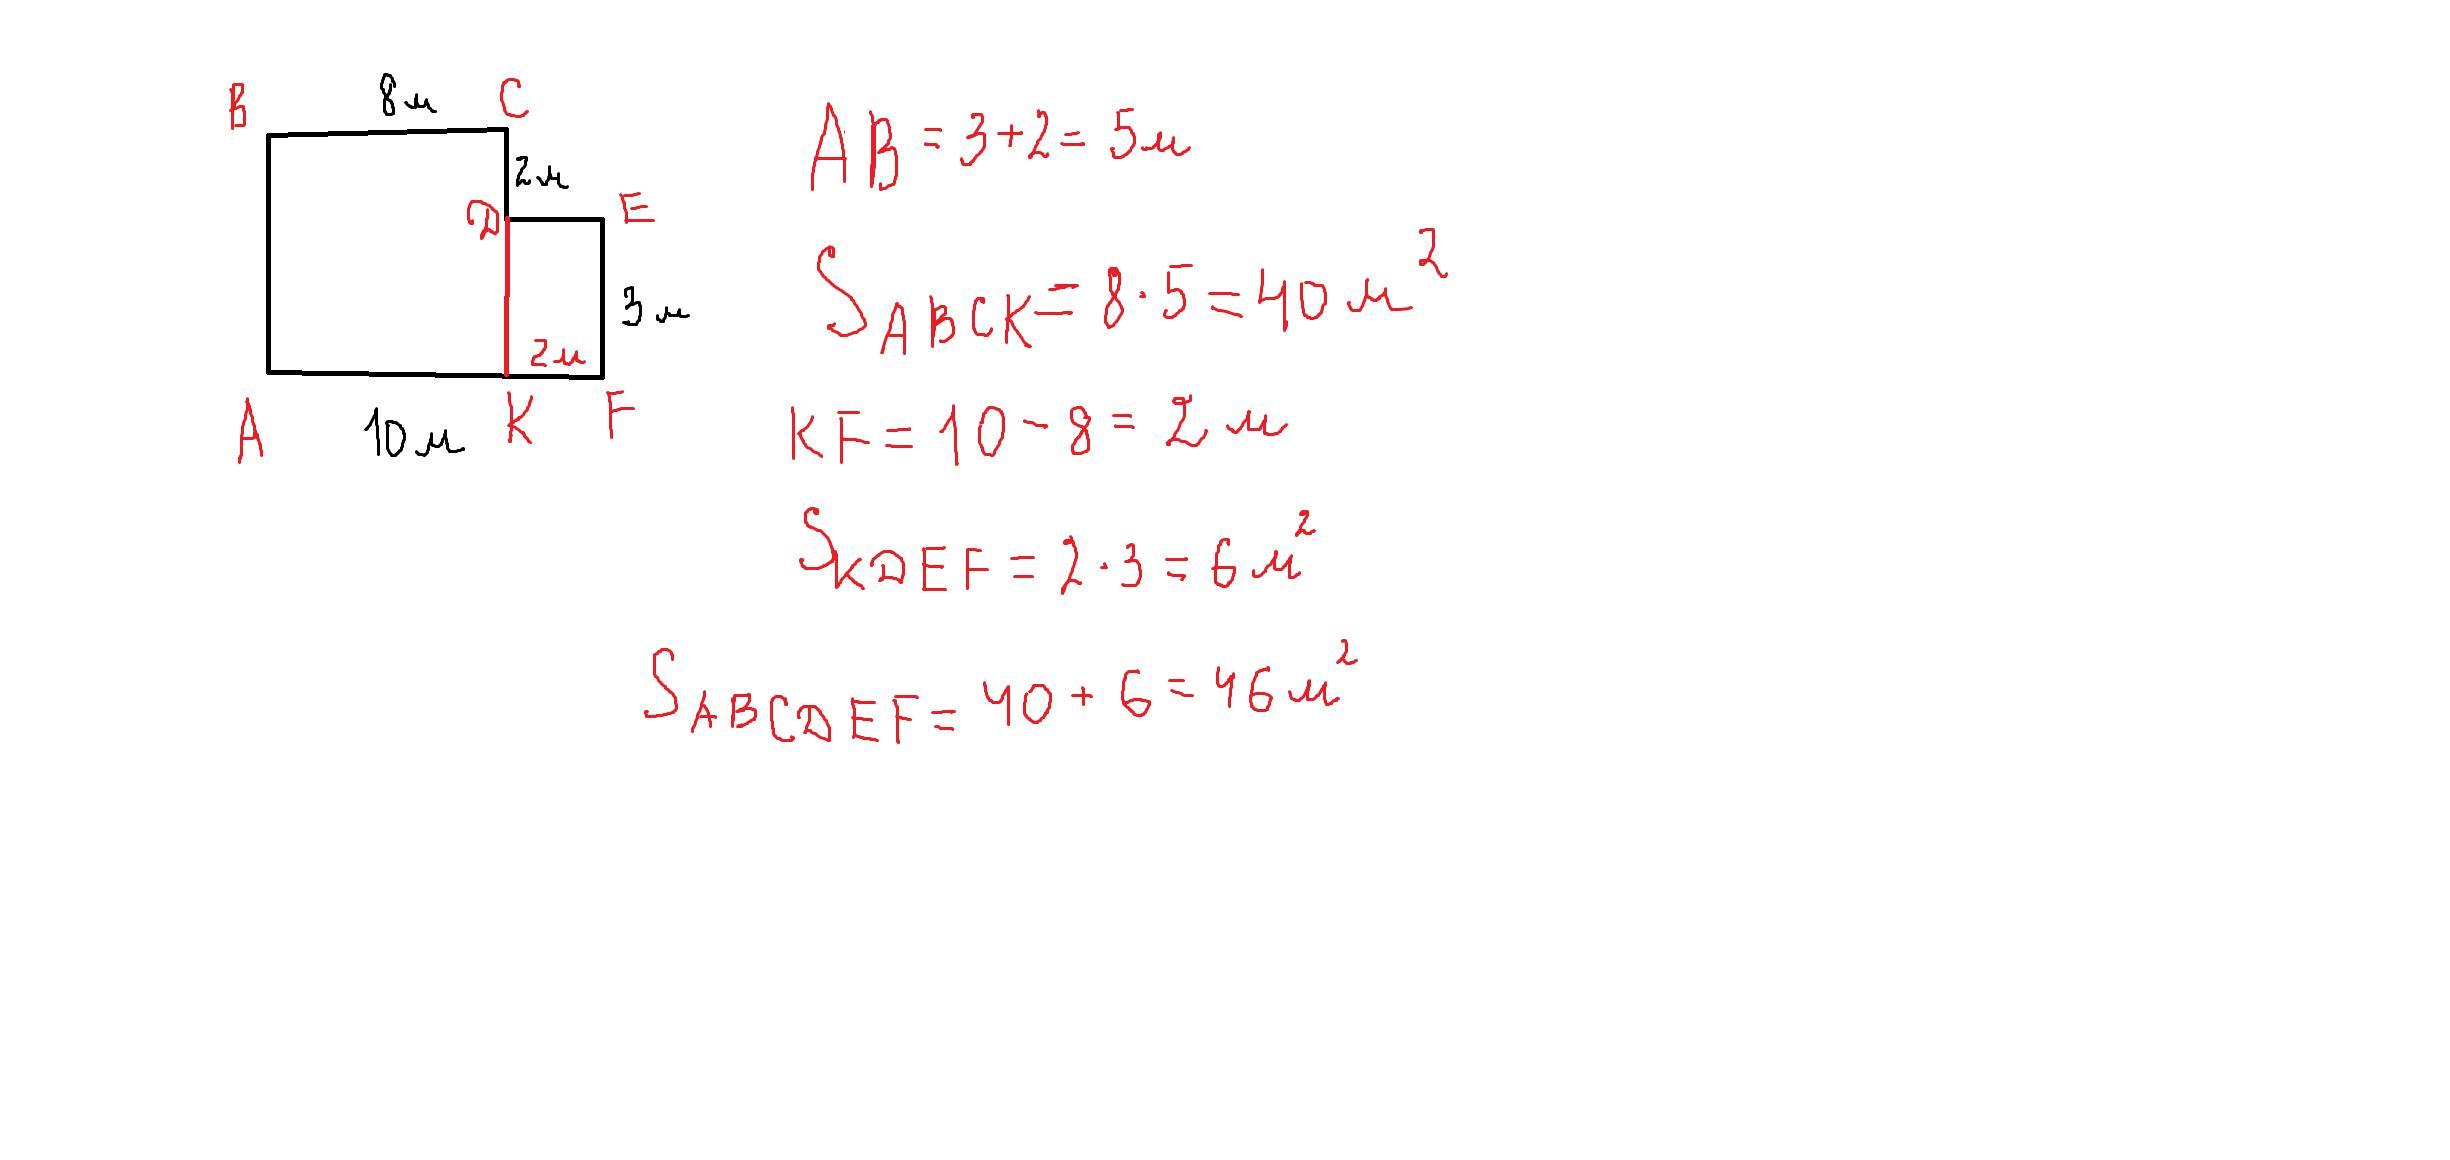 B 8м C
2м
D E
3м
2м
A 10м K F
AB = 3+2 = 5м
S ABCK = 8·5 = 40 м²
KF = 10 - 8 = 2 м
S KDEF = 2·3 = 6 м²
S ABCDEF = 40 + 6 = 46 м²